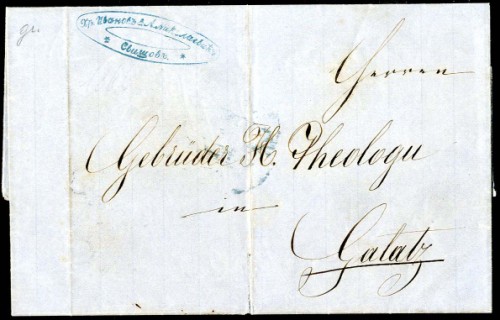 gr.
Хр. Ивановъ & А.
* Свищовъ *
Herren
Gebrüder H. Theologu
in
Galatz